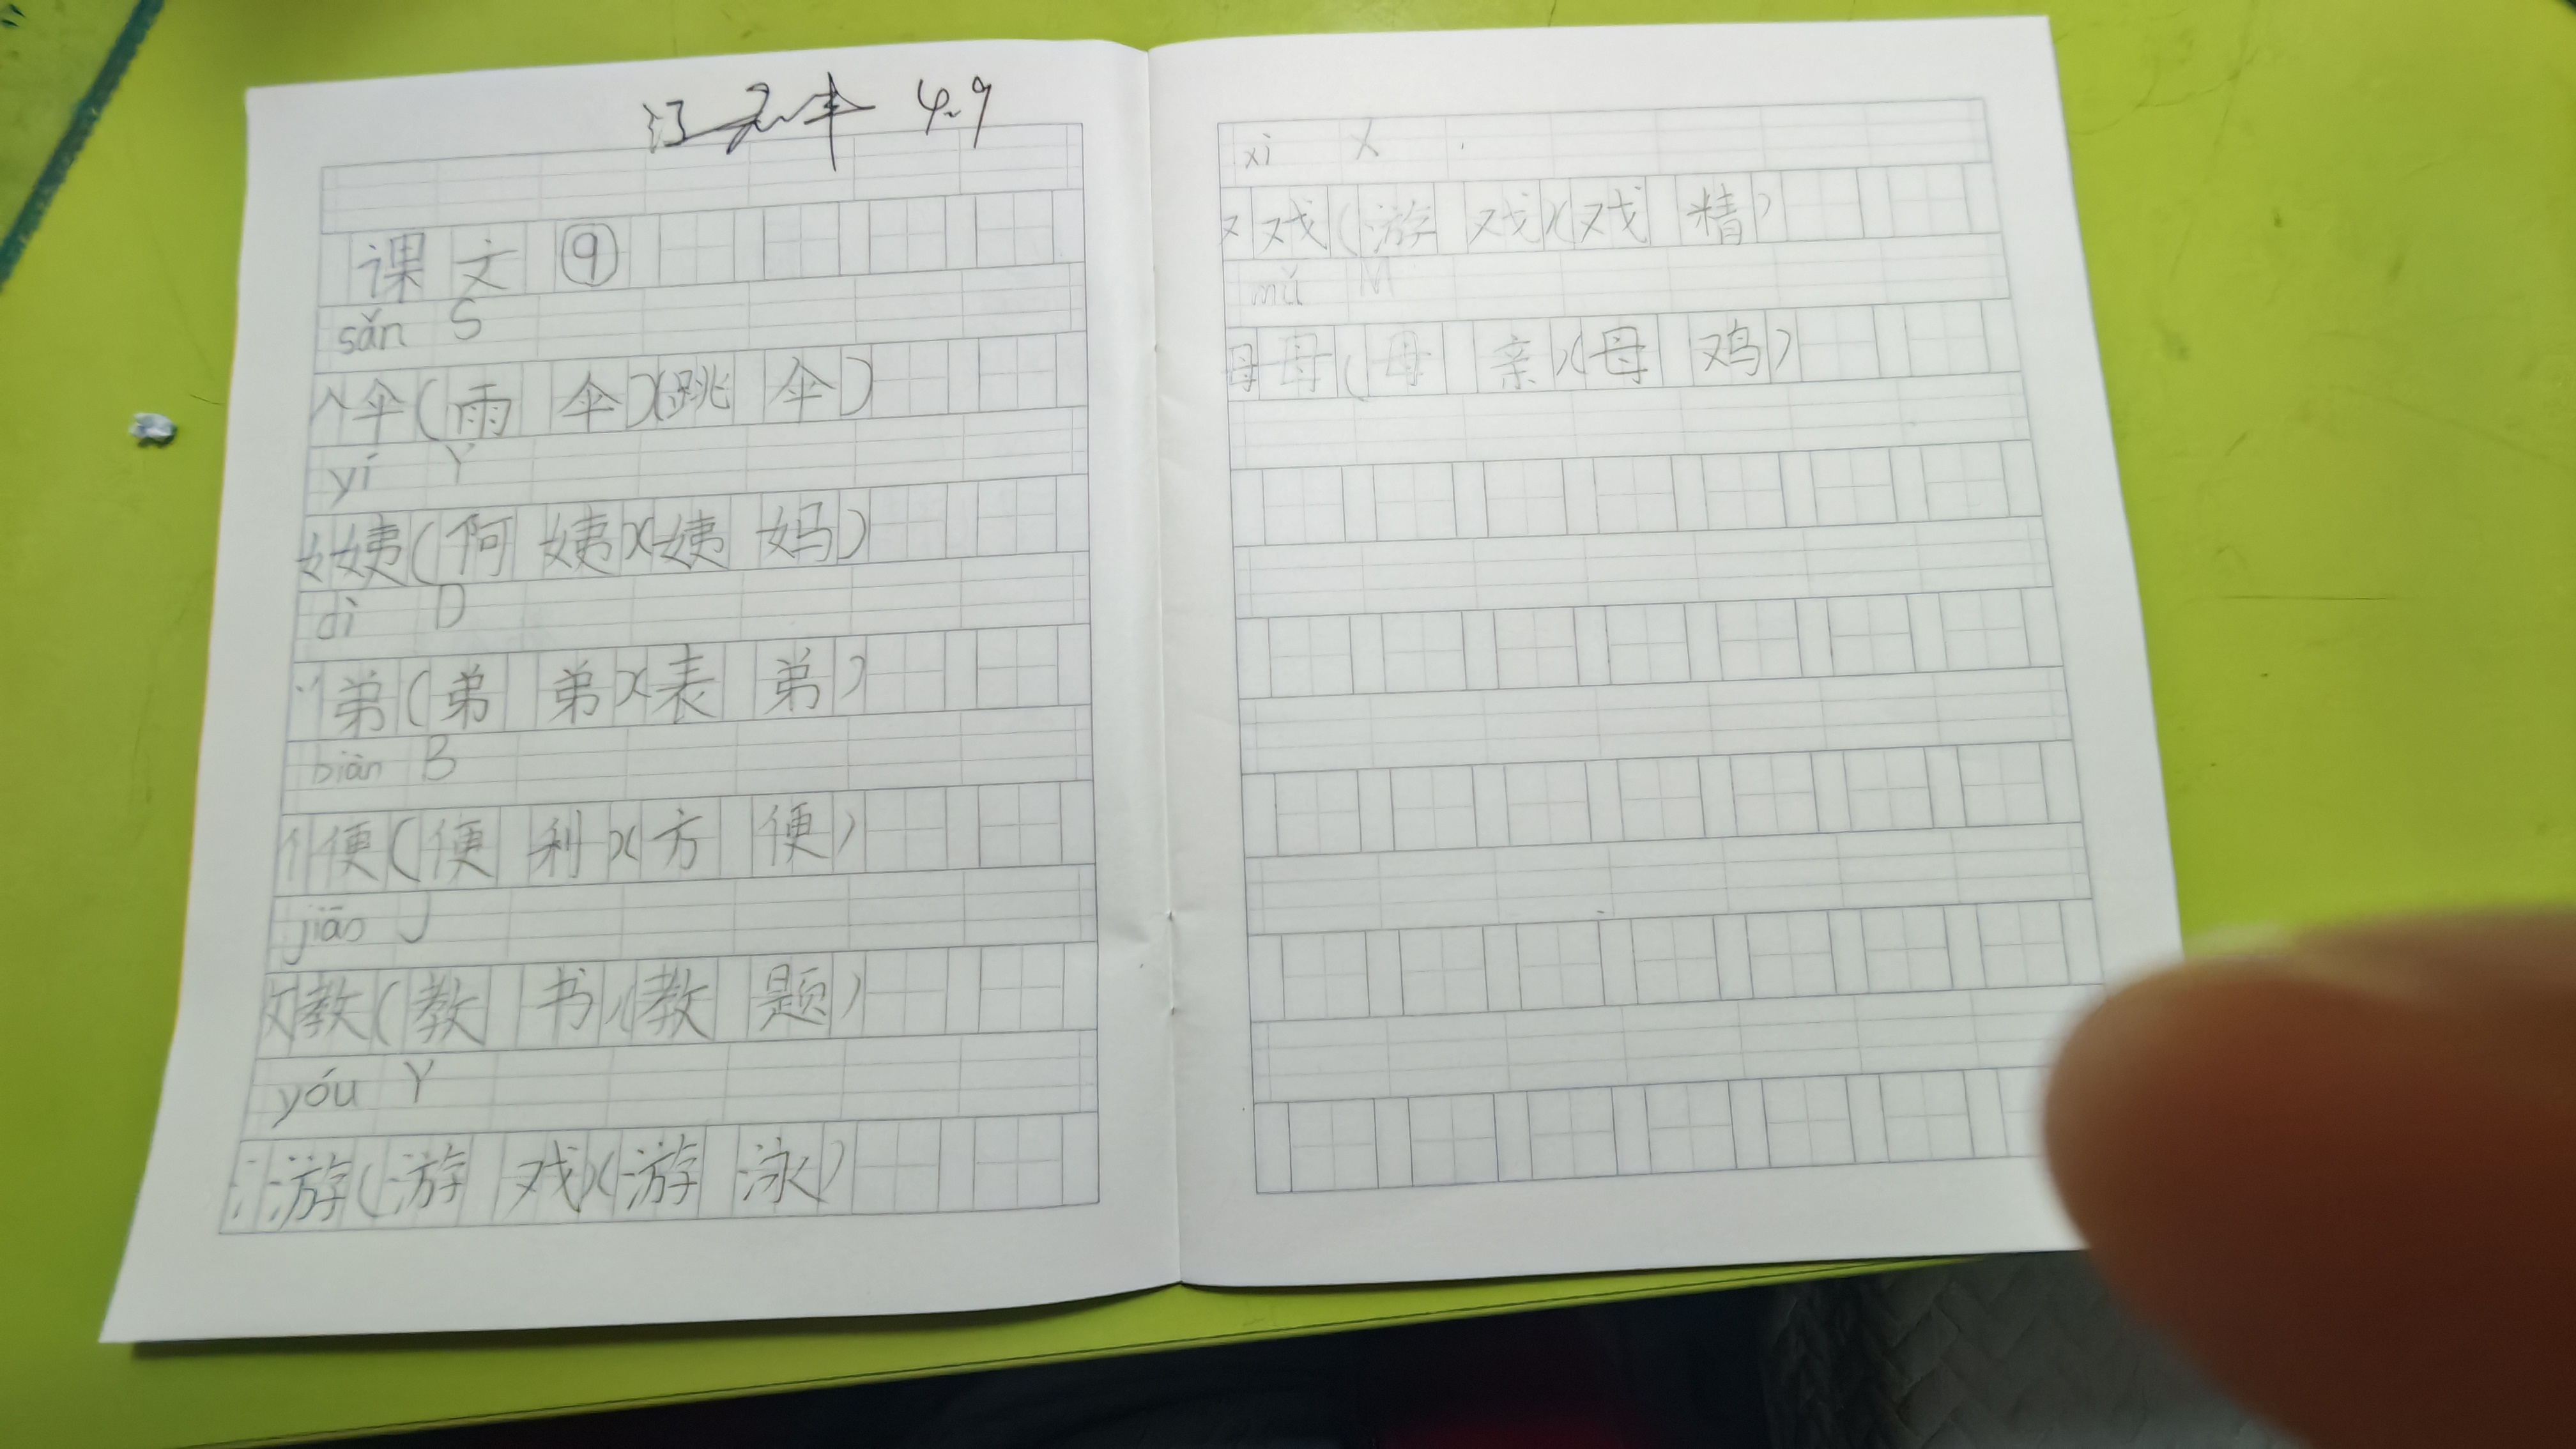 4.9
课文⑨
sǎn S
人伞(雨伞)(跳伞)
yí Y
女姨(阿姨)(姨妈)
dì D
丷弟(弟弟)(表弟)
biàn B
亻便(便利)(方便)
jiāo J
攵教(教书)(教题)
yóu Y
氵游(游戏)(游泳)
xì X
又戏(游戏)(戏精)
mǔ M
母母(母亲)(母鸡)